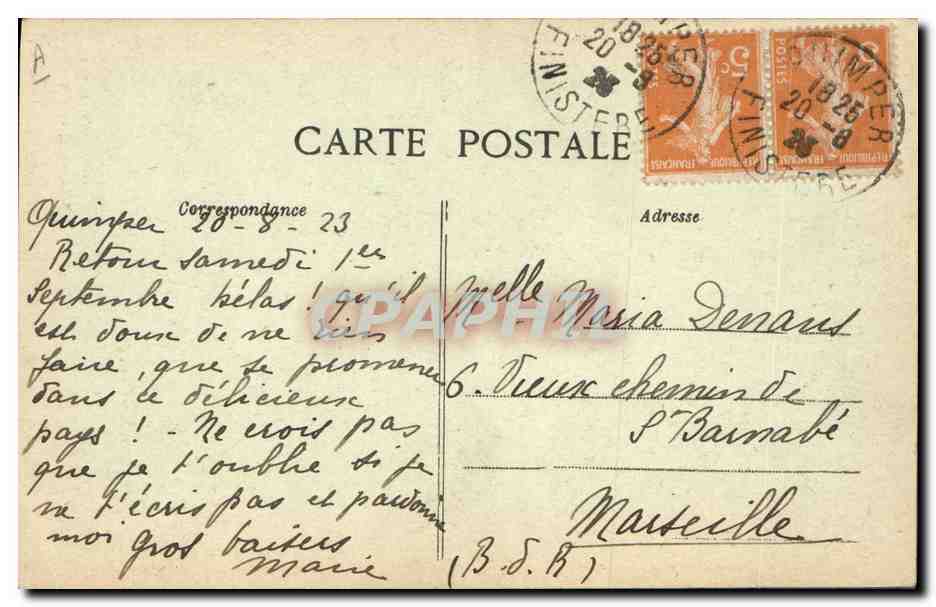 A
QUIMPER
18 25
20 -8
23
FINISTERE
5c
POSTES
REPUBLIQUE FRANÇAISE
QUIMPER
18 25
20 -8
23
FINISTERE
POSTES
REPUBLIQUE FRANÇAISE
CARTE POSTALE
Correspondance
Adresse
Quimper 20-8-23
Retour samedi 1er
septembre hélas ! qu'il
est doux de ne rien
faire, que se promener
dans ce délicieux
pays ! - Ne crois pas
que je t'oublie si je
ne t'écris pas et pardonne
moi gros baisers
Marie
Melle Maria Denans
6. Vieux chemin de
St Barnabé
Marseille
(B. d. R)
CPAPHIL